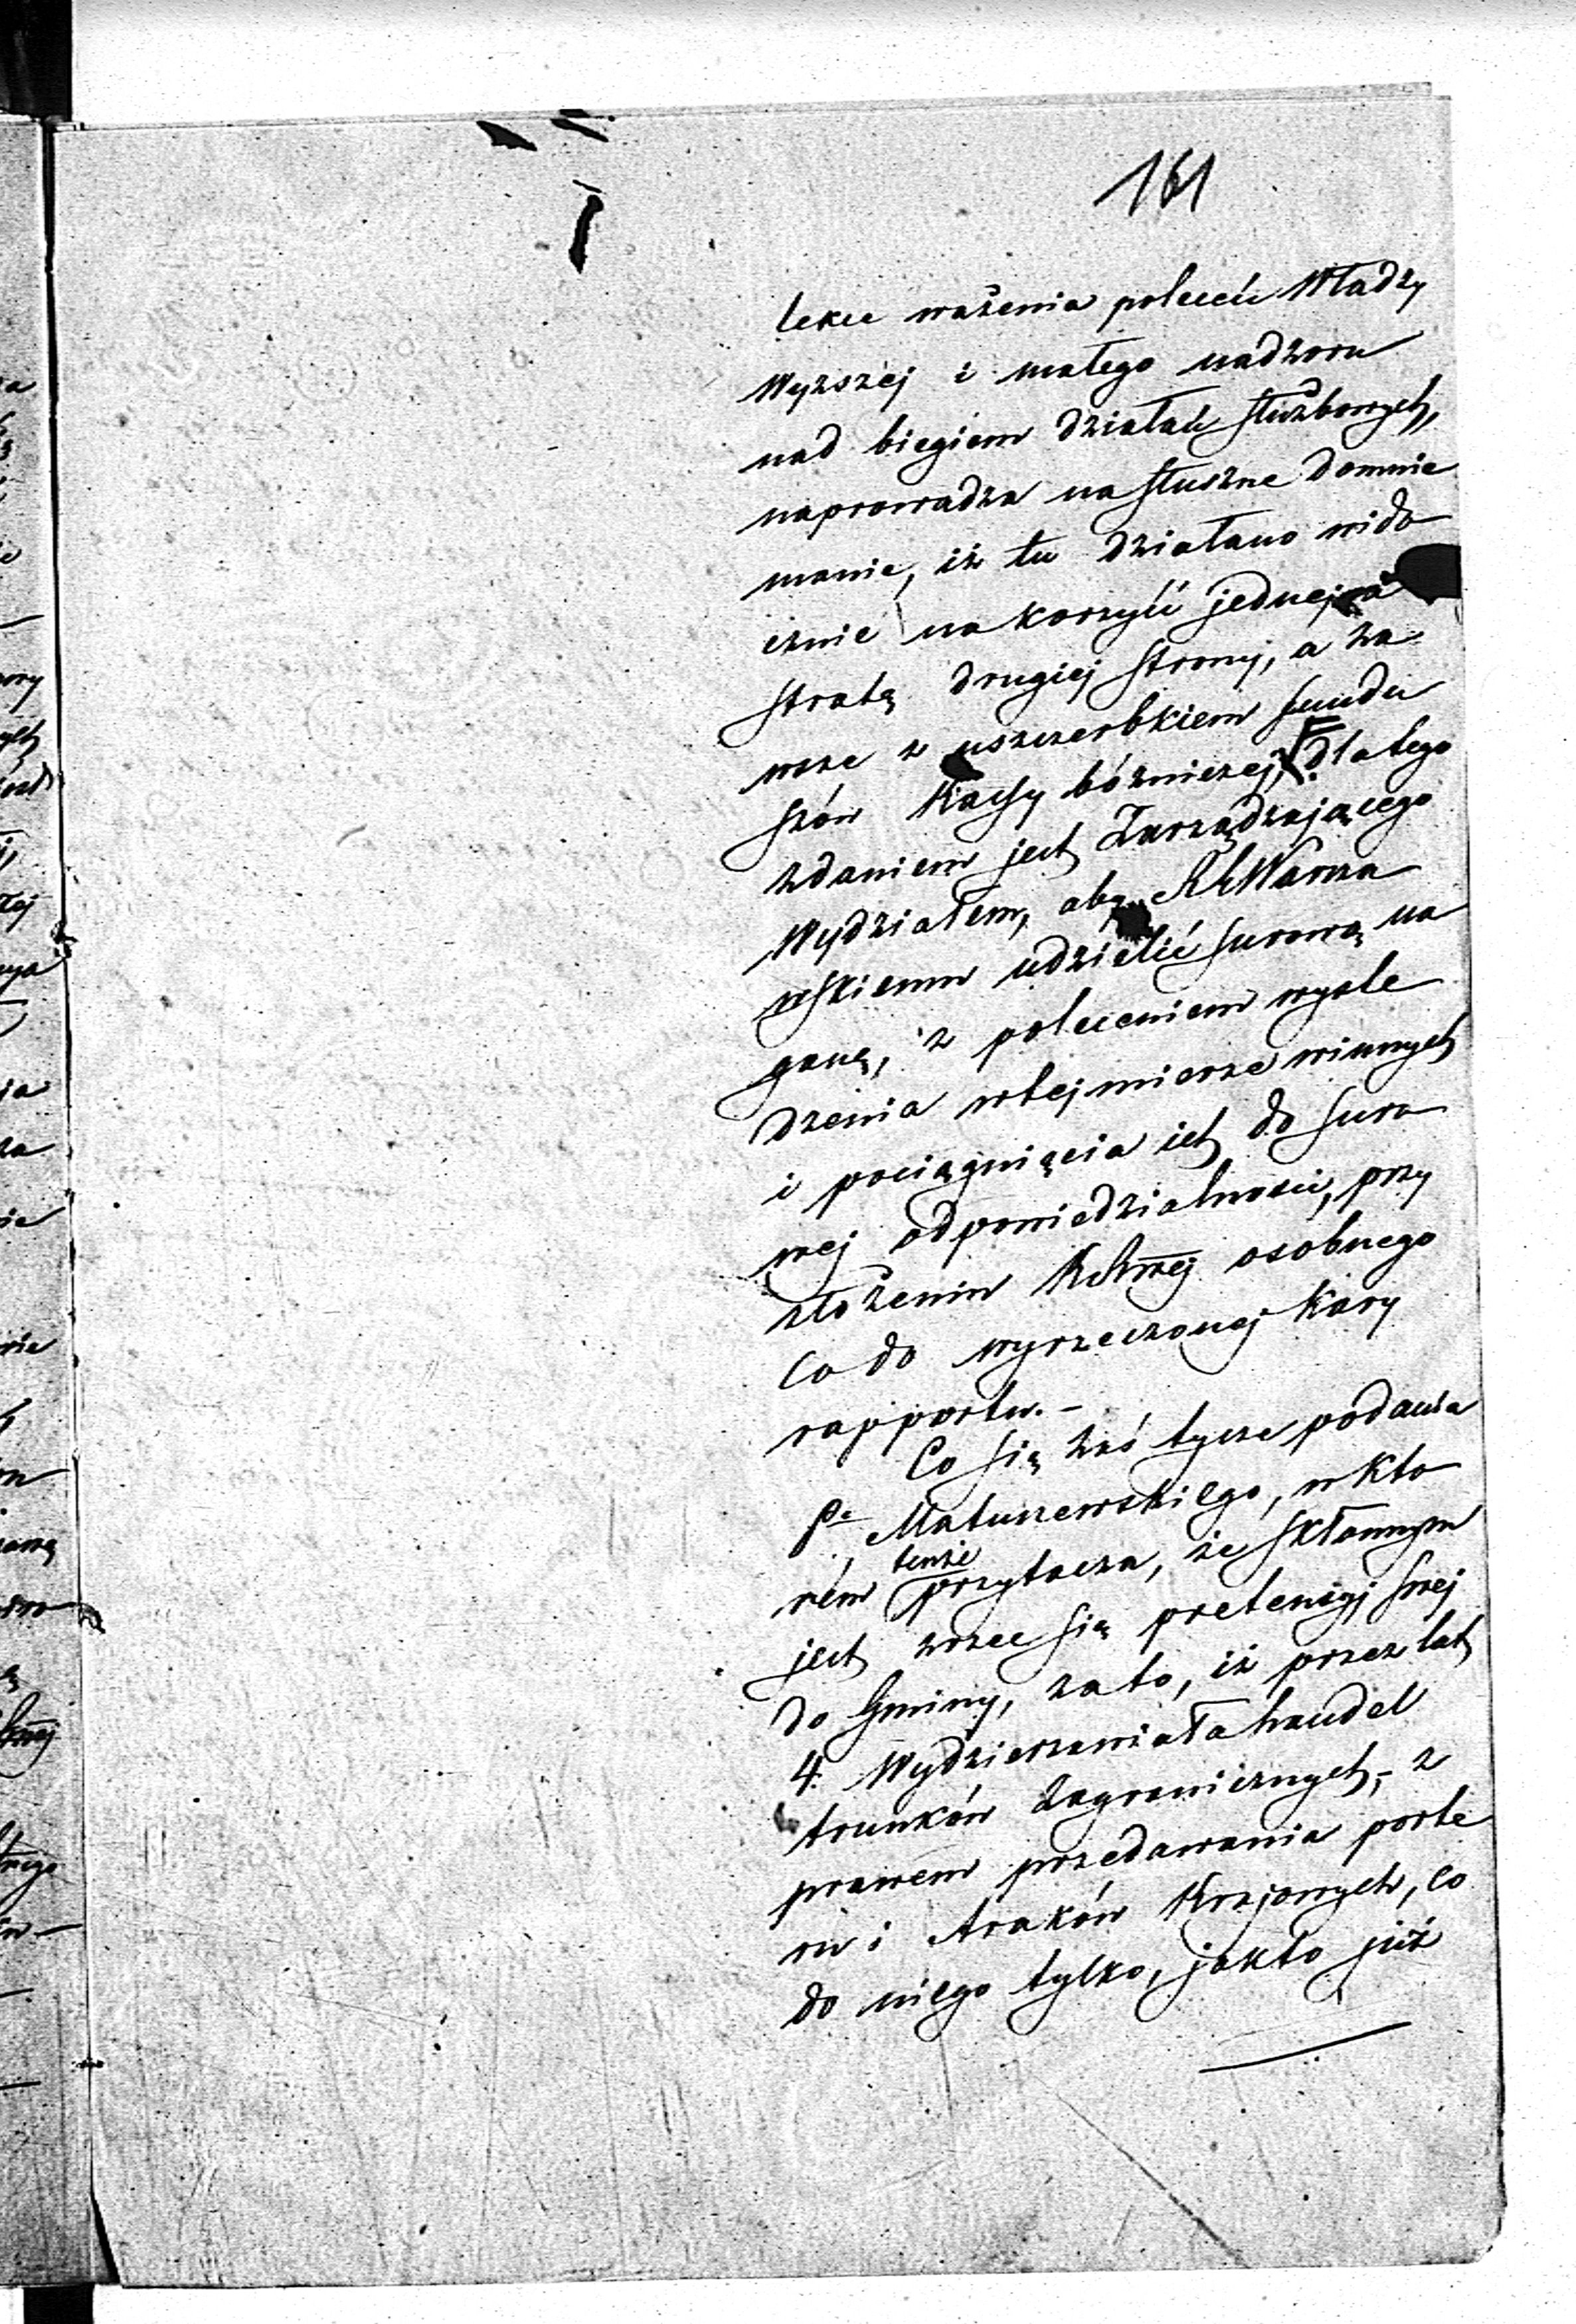 161
lekce ważenia poleceń Władzy
Wyższej i małego nadzoru
nad biegiem działań służbowych,
naprowadza na słuszne domnie
manie, iż tu działano wido
cznie na korzyść jednej, a
stratę drugiej strony, a za
wsze z uszczerbkiem fundu
szów Kassy bóżniczej, dlatego
zdaniem jest Zarządzającego
Wydziałem, aby Warsza
wskiemu udzielić surową na
ganę, z poleceniem wyśle
dzenia wtej mierze winnych
i pociągnięcia ich do suro
wej odpowiedzialności, przy
złożeniu osobnego
co do wyrzeczonej Kary
rapportu. -
Co się zaś tycze podania
Matuszewskiego, w któ
rém tenże przytacza, że skłonnym
jest zrzec się pretensyj swej
do Gminy, za to, iż przez lat
4. Wydzierzawiała handel
trunków Zagranicznych, - z
prawem przedawania porte
ru i Araków Krajowych, co
do niego tylko, jak to już